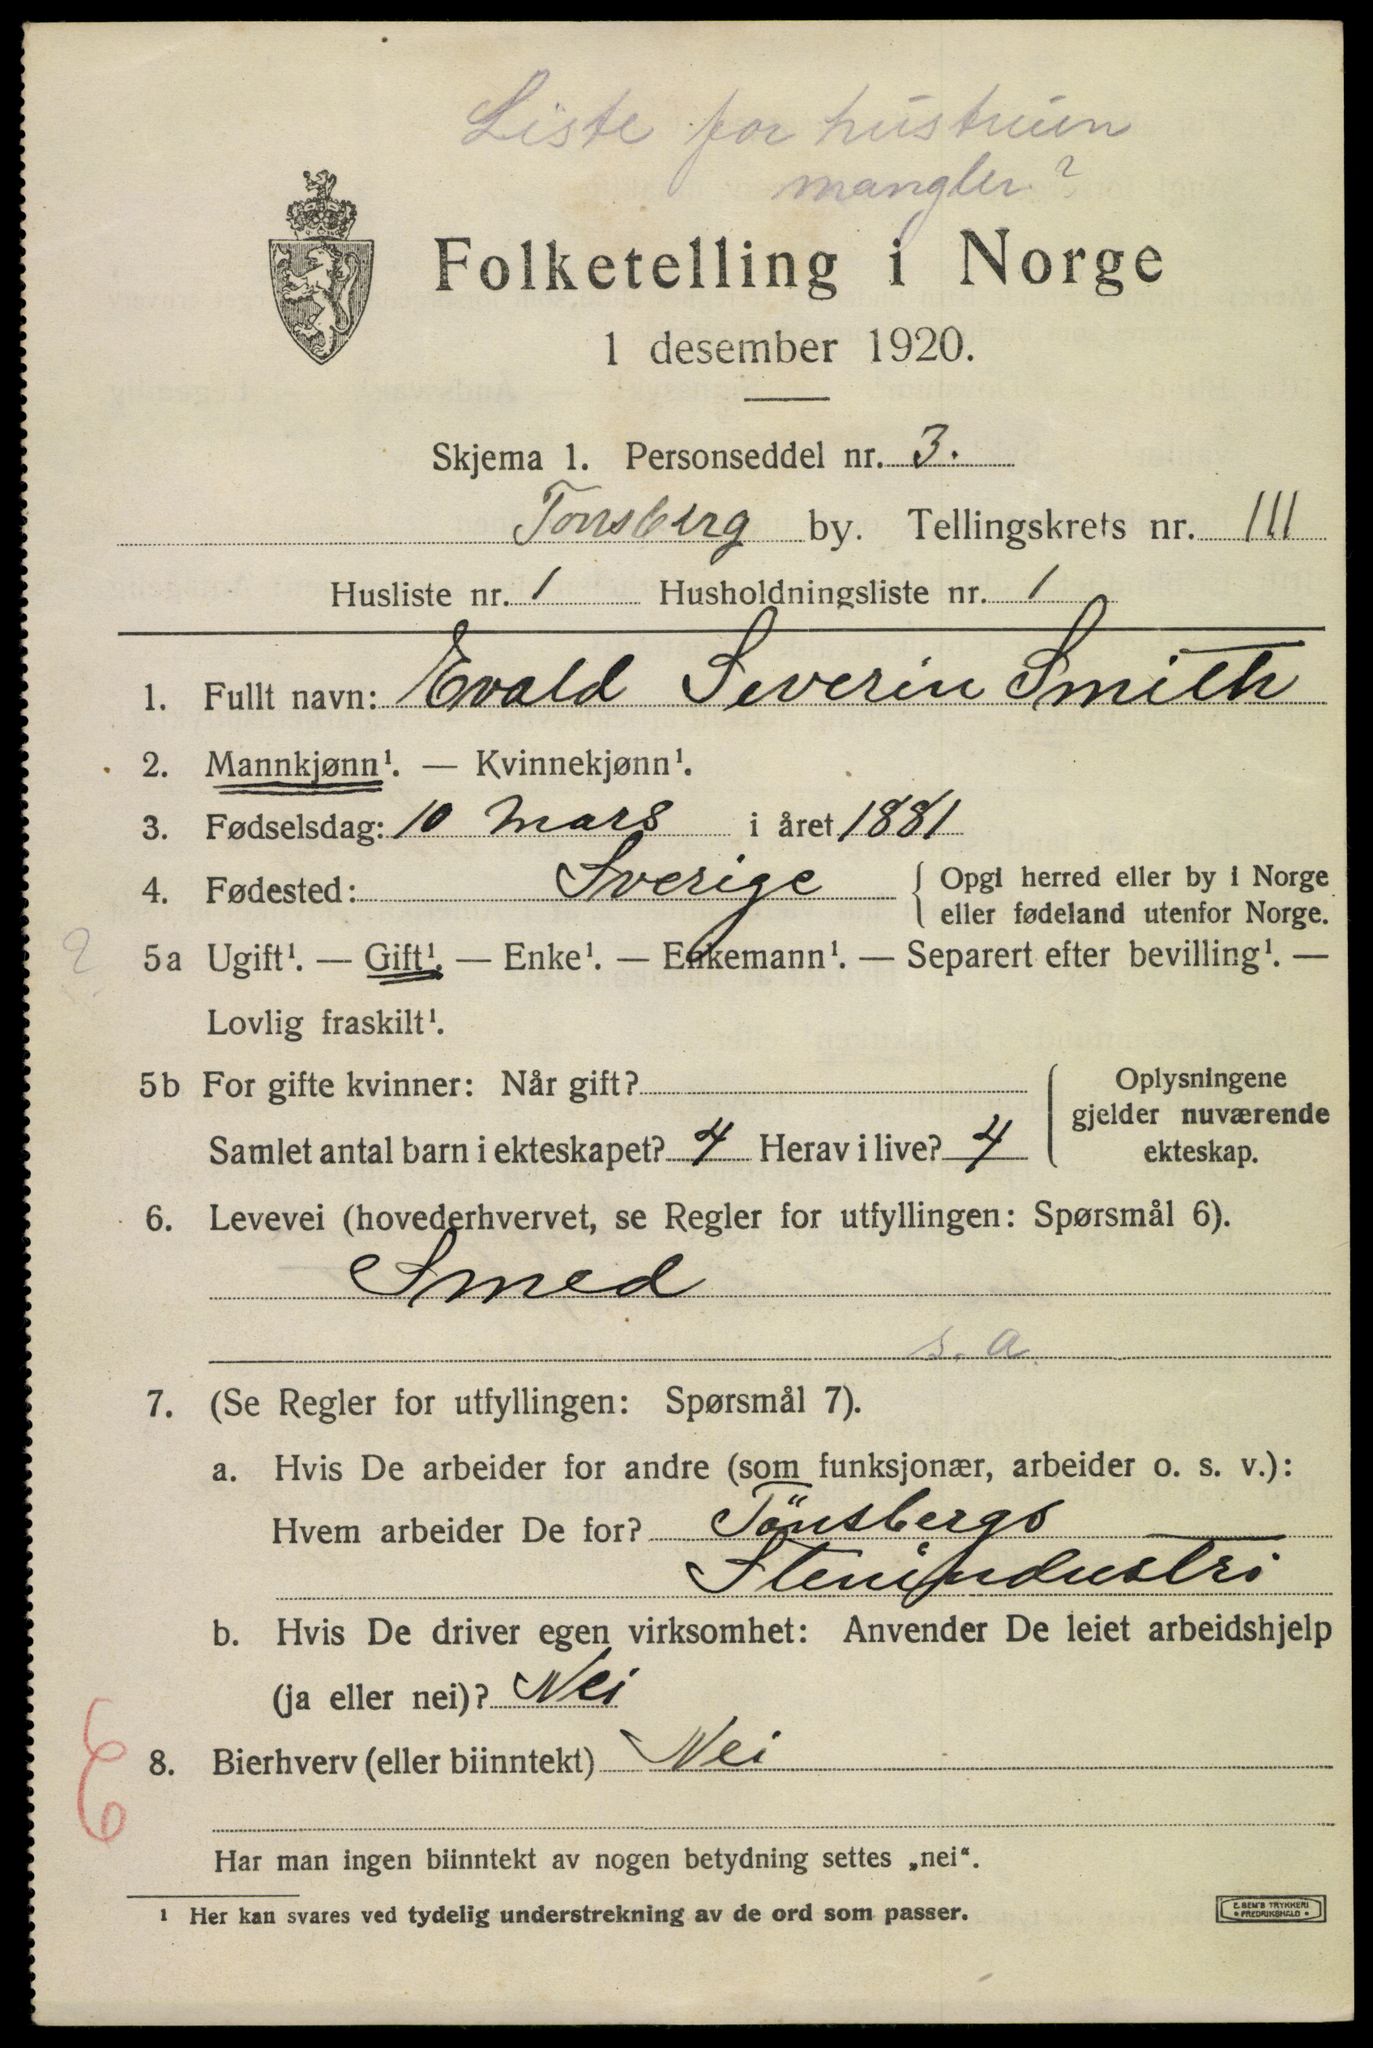 Liste for hustruen
mangler?
Folketelling i Norge
1 desember 1920.
Skjema 1. Personseddel nr. 3.
Tønsberg by. Tellingskrets nr. III
Husliste nr. 1 Husholdningsliste nr. 1
1. Fullt navn: Evald Severin Smith
2. Mannkjønn¹. — Kvinnekjønn¹.
3. Fødselsdag: 10 mars i året 1881
4. Fødested: Sverige { Opgi herred eller by i Norge
eller fødeland utenfor Norge.
? 5a Ugift¹. — Gift¹. — Enke¹. — Enkemann¹. — Separert efter bevilling¹. —
Lovlig fraskilt¹.
5b For gifte kvinner: Når gift?
Samlet antal barn i ekteskapet? 4 Herav i live? 4
Oplysningene
gjelder nuværende
ekteskap.
6. Levevei (hovederhvervet, se Regler for utfyllingen: Spørsmål 6).
Smed
s. a.
7. (Se Regler for utfyllingen: Spørsmål 7).
a. Hvis De arbeider for andre (som funksjonær, arbeider o. s. v.):
Hvem arbeider De for? Tönsbergs
Stenindustri
b. Hvis De driver egen virksomhet: Anvender De leiet arbeidshjelp
(ja eller nei)? Nei
8. Bierhverv (eller biinntekt) Nei
Har man ingen biinntekt av nogen betydning settes „nei“.
¹ Her kan svares ved tydelig understrekning av de ord som passer.
E. SEM'S TRYKKERI
• FREDRIKSHALD •